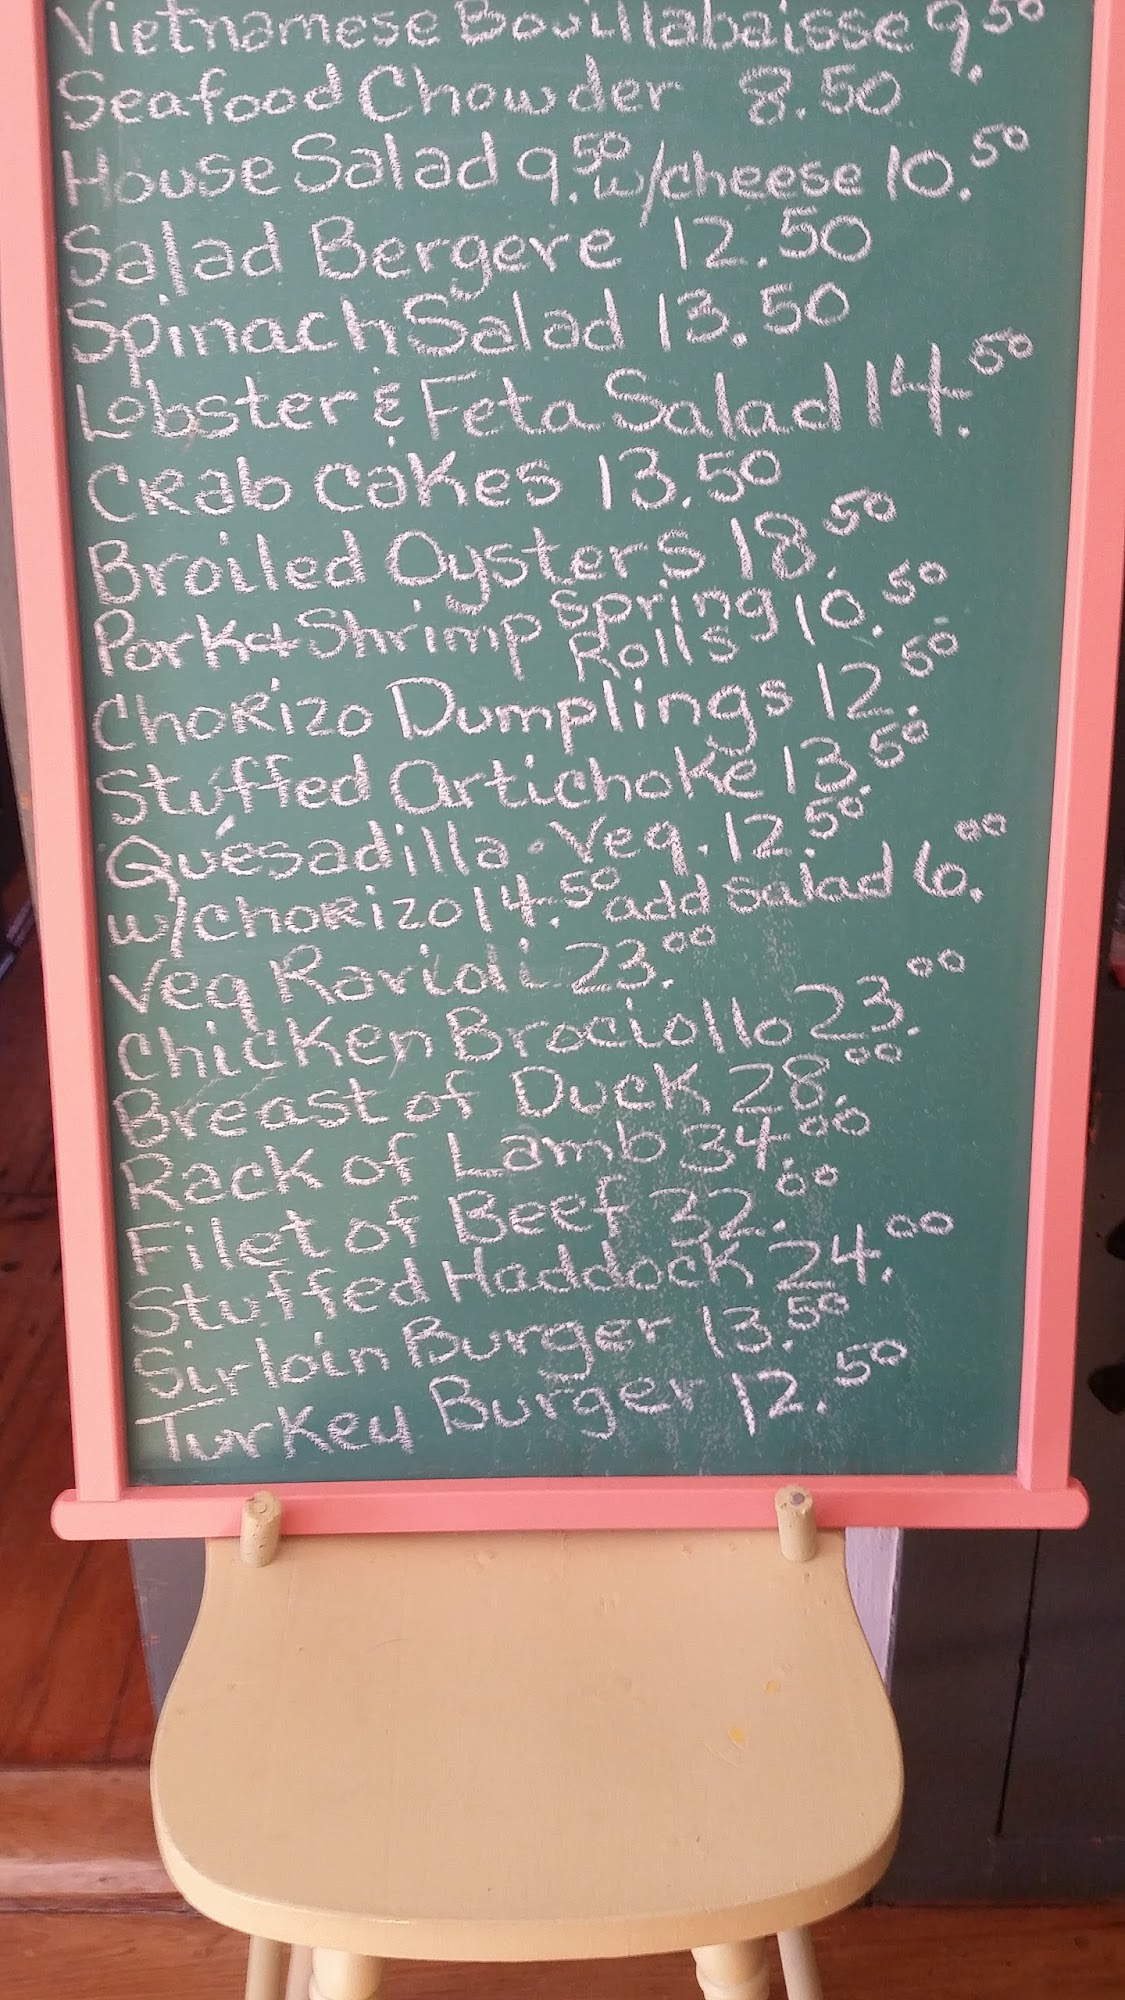 Vietnamese Bouillabaisse 9.50
Seafood Chowder 8.50
House Salad 9.50 w/cheese 10.50
Salad Bergere 12.50
Spinach Salad 13.50
Lobster & Feta Salad 14.50
Crab Cakes 13.50
Broiled Oysters 18.50
Pork & Shrimp Spring Rolls 10.50
Chorizo Dumplings 12.50
Stuffed Artichoke 13.50
Quésadilla. Veg. 12.50
w/chorizo 14.50 add salad 6.00
Veg Ravioli 23.00
Chicken Brociollo 23.00
Breast of Duck 28.00
Rack of Lamb 34.00
Filet of Beef 32.00
Stuffed Haddock 24.00
Sirloin Burger 13.50
Turkey Burger 12.50